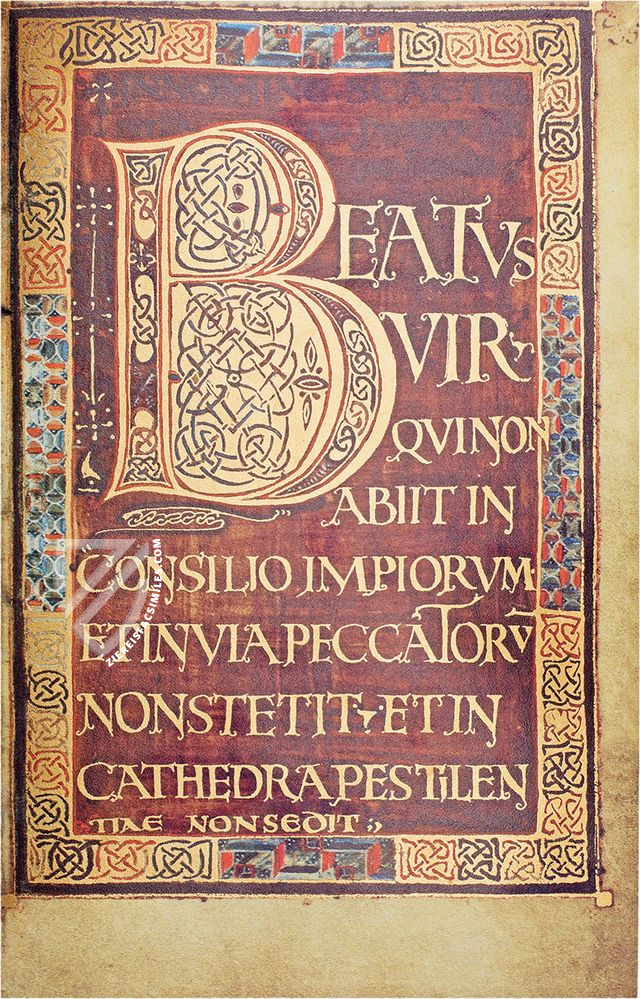 BEATVS
VIR
QVINON
ABIIT IN
CONSILIO IMPIORVM·
ETINVIAPECCATORV̄
NONSTETIT·ETIN
CATHEDRAPESTILEN
TIAE NONSEDIT:,
ZIEREISFACSIMILES.COM